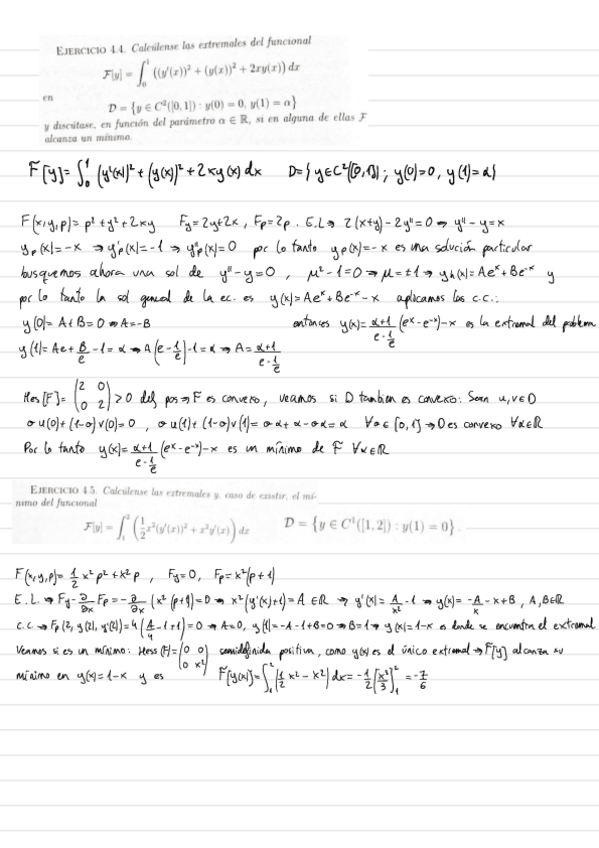 EJERCICIO 4.4. Calcúlense las extremales del funcional
F[y] = ∫₀¹ ((y'(x))² + (y(x))² + 2xy(x)) dx
en
D = {y ∈ C²([0,1]) : y(0) = 0, y(1) = α}
y discútase, en función del parámetro α ∈ ℝ, si en alguna de ellas F
alcanza un mínimo.
F[y] = ∫₀¹ (y'(x))² + (y(x))² + 2xy(x) dx D = {y ∈ C²([0,1]); y(0)=0, y(1)=α}
F(x,y,p) = p² + y² + 2xy Fy = 2y+2x, Fp = 2p. E.L → 2(x+y) - 2y'' = 0 ⇒ y'' - y = x
yp(x) = -x ⇒ y'p(x) = -1 ⇒ y''p(x) = 0 por lo tanto yp(x) = -x es una solución particular
busquemos ahora una sol de y'' - y = 0, μ² - 1 = 0 ⇒ μ = ±1 ⇒ yh(x) = Ae^x + Be^-x y
por lo tanto la sol general de la ec. es y(x) = Ae^x + Be^-x - x aplicamos las c.c.:
y(0) = A + B = 0 ⇒ A = -B entonces y(x) = (α+1)/(e - 1/e) (e^x - e^-x) - x es la extremal del problema
y(1) = Ae + B/e - 1 = α ⇒ A(e - 1/e) - 1 = α ⇒ A = (α+1)/(e - 1/e)
Hes[F] = (2 0; 0 2) > 0 def pos ⇒ F es convexo, veamos si D tambien es convexo: Sean u,v ∈ D
σu(0) + (1-σ)v(0) = 0, σu(1) + (1-σ)v(1) = σα + α - σα = α ∀σ ∈ [0,1] → D es convexo ∀α∈ℝ
Por lo tanto y(x) = (α+1)/(e - 1/e) (e^x - e^-x) - x es un mínimo de F ∀α∈ℝ
EJERCICIO 4.5. Calcúlense las extremales y, caso de existir, el mí-
nimo del funcional
F[y] = ∫₁² (1/2 x²(y'(x))² + x²y'(x)) dx D = {y ∈ C¹([1,2]) : y(1) = 0}.
F(x,y,p) = 1/2 x²p² + x²p, Fy = 0, Fp = x²(p+1)
E.L → Fy - ∂/∂x Fp = -∂/∂x (x²(p+1)) = 0 ⇒ x²(y'(x)+1) = A ∈ ℝ ⇒ y'(x) = A/x² - 1 ⇒ y(x) = -A/x - x + B, A,B∈ℝ
c.c. → Fp(2, y(2), y'(2)) = 4(A/4 - 1 + 1) = 0 ⇒ A = 0, y(1) = -A - 1 + B = 0 ⇒ B = 1 ⇒ y(x) = 1-x es donde se encuentra el extremal
Veamos si es un mínimo: Hess(F) = (0 0; 0 x²) semidefinida positiva, como y(x) es el único extremal ⇒ F[y] alcanza su
mínimo en y(x) = 1-x y es F[y(x)] = ∫₁² (1/2 x² - x²) dx = -1/2 [x³/3]₁² = -7/6